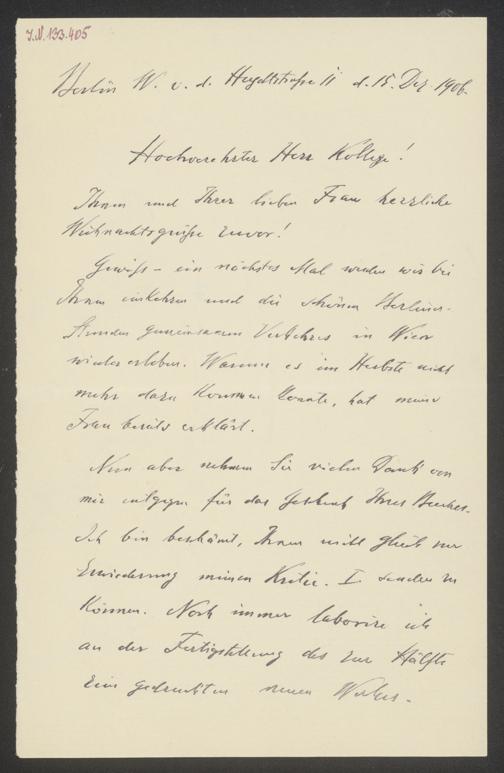 J.N. 133.405
Berlin W. v. d. Heydtstraße 11 d. 15. Dez. 1906.
Hochverehrter Herr Kollege!
Ihnen und Ihrer lieben Frau herzliche
Weihnachtsgrüße zuvor!
Gewiß – ein nächstes Mal werden wir bei
Ihnen einkehren und die schönen Berliner-
Stunden gemeinsamen Verkehres in Wien
wieder erleben. Warum es im Herbste nicht
mehr dazu kommen konnte, hat meine
Frau bereits erklärt.
Nun aber nehmen Sie vielen Dank von
mir entgegen für das Geschenk Ihres Buches.
Ich bin beschämt, Ihnen nicht gleich zur
Erwiederung meinen Kritic. I senden zu
können. Noch immer laborire ich
an der Fertigstellung des zur Hälfte
gedruckten neuen Werkes.